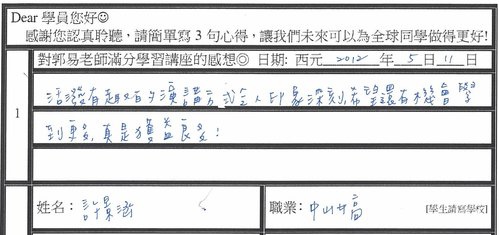 Dear 學員您好☺
感謝您認真聆聽，請簡單寫 3 句心得，讓我們未來可以為全球同學做得更好!
對郭易老師滿分學習講座的感想◎ 日期: 西元 2012 年 5 日 11 日
1
活潑有趣的演講方式令人印象深刻,希望還有機會學
到更多,真是獲益良多!
姓名： 許景涵
職業： 中山女高 [學生請寫學校]